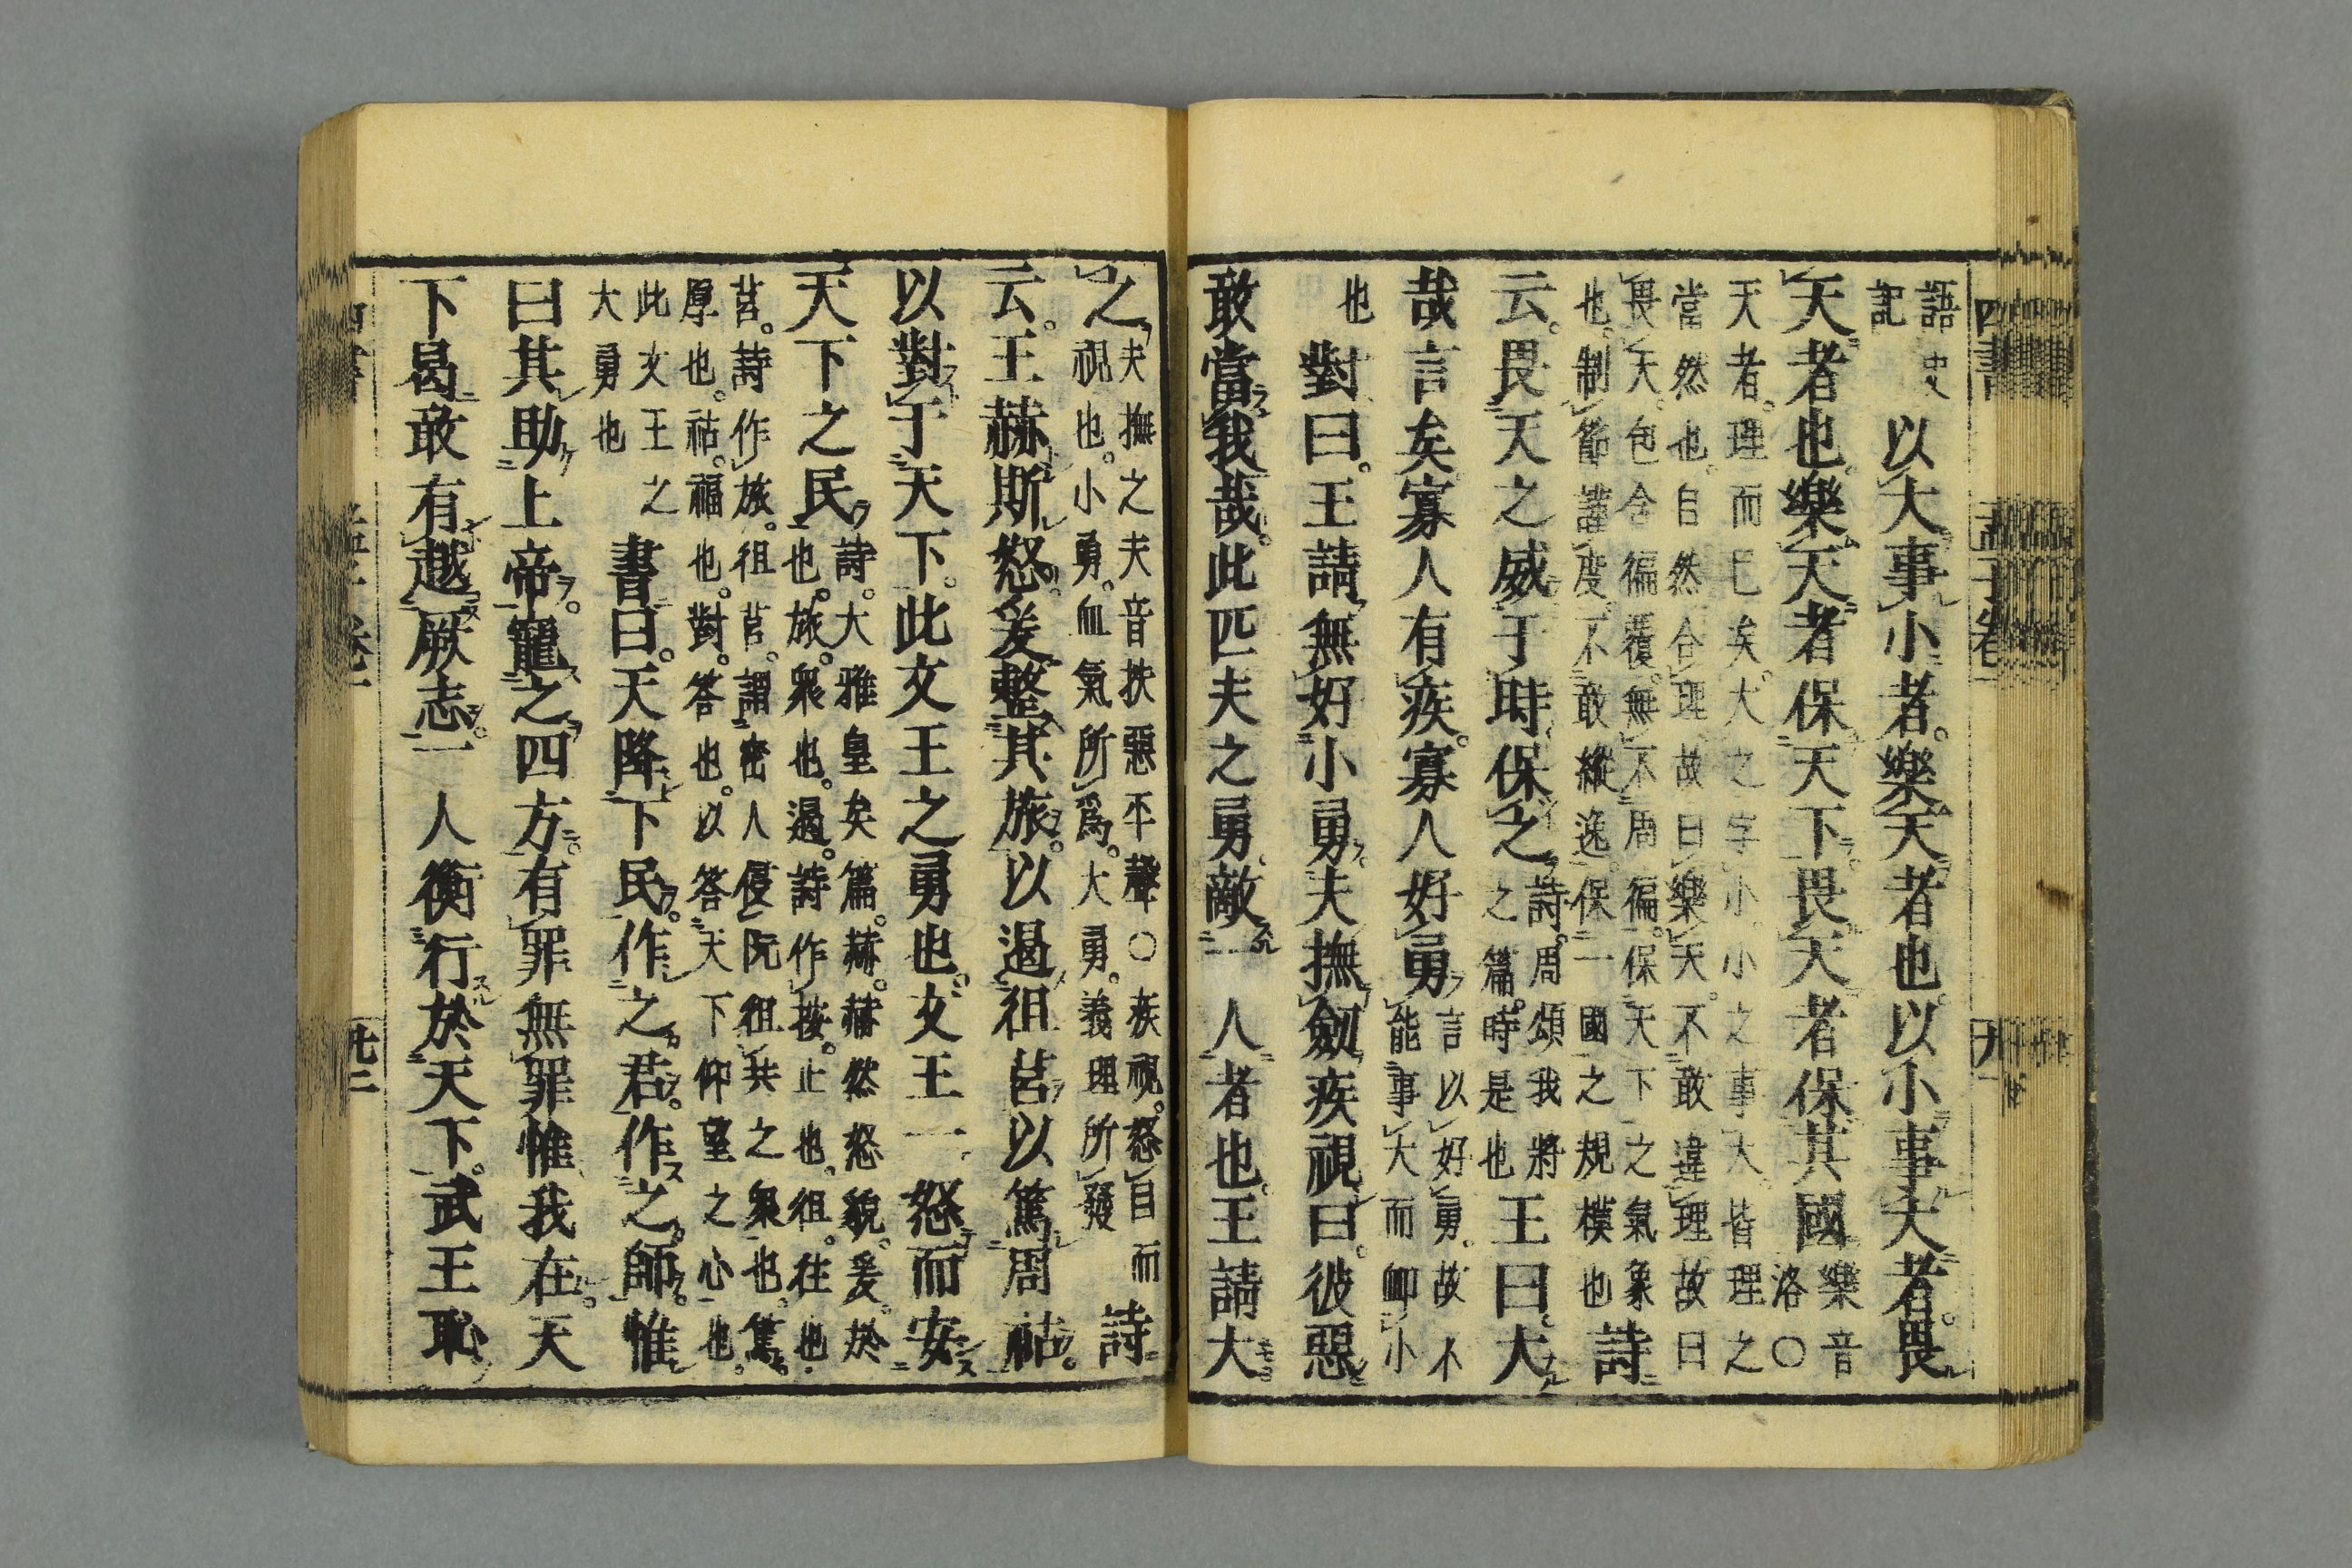 語史
記
以大事小者。樂天者也。以小事大者。畏
天者也。樂天者保天下。畏天者保其國
樂音
洛○
天者。理而已矣。大之字小。小之事大。皆理之
當然也。自然合理。故曰樂天。不敢違理。故曰
畏天。包含徧覆。無不周徧。保天下之氣象
也。制節謹度。不敢縱逸。保一國之規模也
詩
云。畏天之威。于時保之
詩。周頌我將
之篇。時是也
王曰。大
哉言矣。寡人有疾。寡人好勇
言以好勇。故不
能事大而卹小
也
對曰。王請無好小勇。夫撫劒疾視曰。彼惡
敢當我哉。此匹夫之勇。敵一人者也。王請大
之
夫撫之夫音扶惡平聲○疾視。怒目而
視也。小勇。血氣所爲。大勇。義理所發
詩
云。王赫斯怒。爰整其旅。以遏徂莒。以篤周祜。
以對于天下。此文王之勇也。文王一怒而安
天下之民
詩。大雅皇矣篇。赫。赫然怒貌。爰。於
也。旅。衆也。遏。詩作按。止也。徂。往也。
莒。詩作旅。徂莒。謂密人侵阮徂共之衆也。篤。
厚也。祜。福也。對。答也。以答天下仰望之心也。
此文王之
大勇也
書曰。天降下民。作之君。作之師。惟
曰其助上帝。寵之四方。有罪無罪惟我在。天
下曷敢有越厥志。一人衡行於天下。武王恥